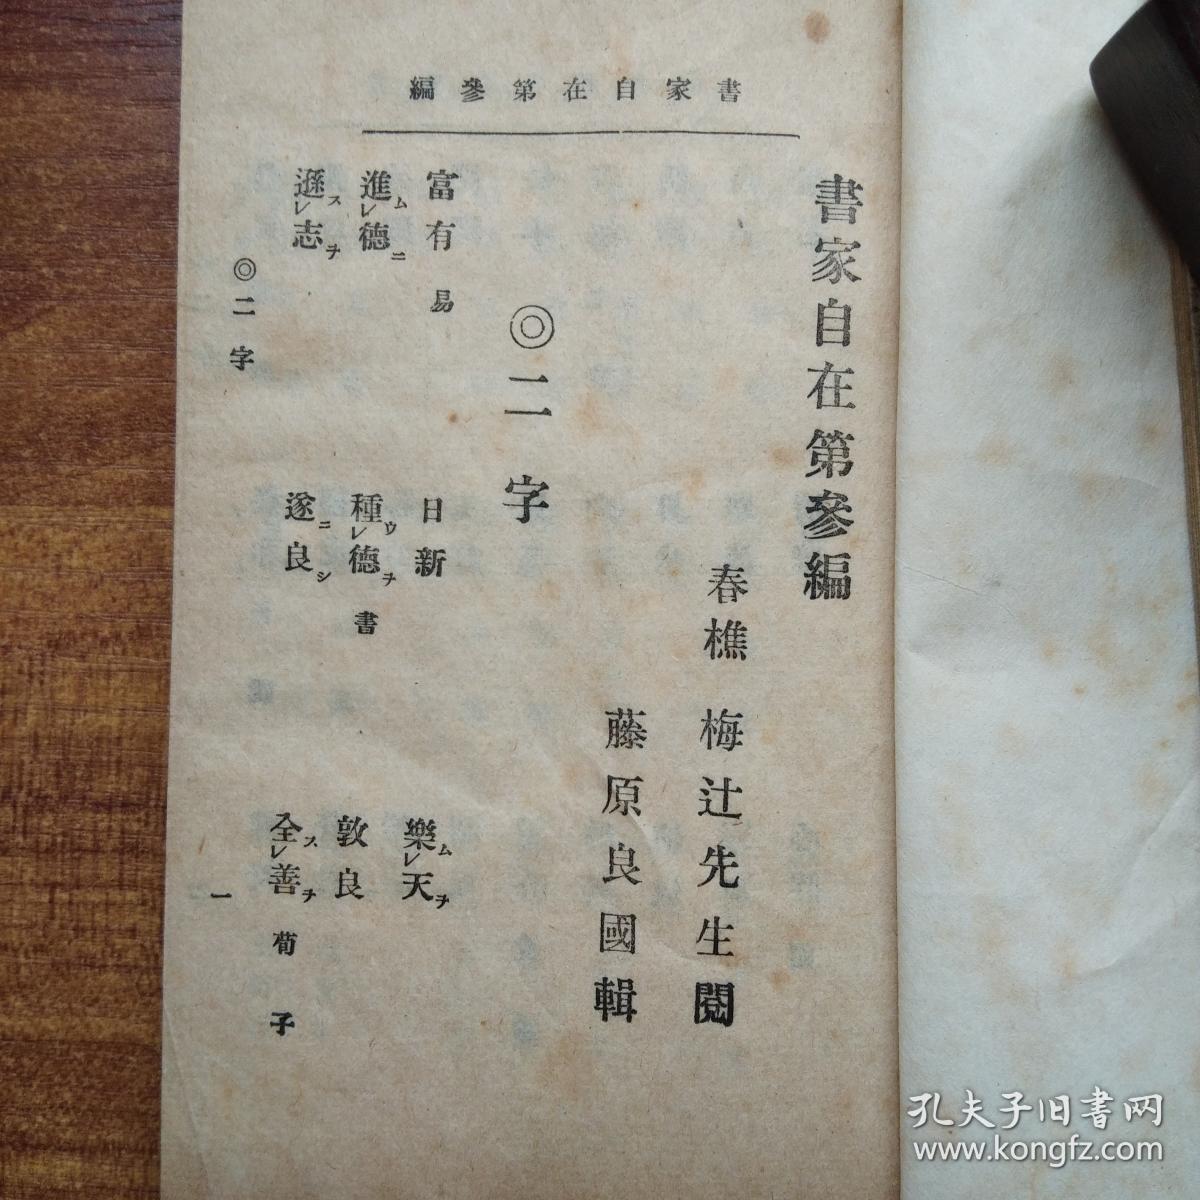 書家自在第參編
書家自在第參編
春樵　梅辻先生閲
藤原良國輯
◎二字
富有　易
日新
樂レ天ムヲ
進レ德ムニ
種レ德ウヲ　書
敦良
遜レ志スヲ
遂良ニシ
全レ善スヲ　荀子
◎二字
一
孔夫子旧书网
www.kongfz.com